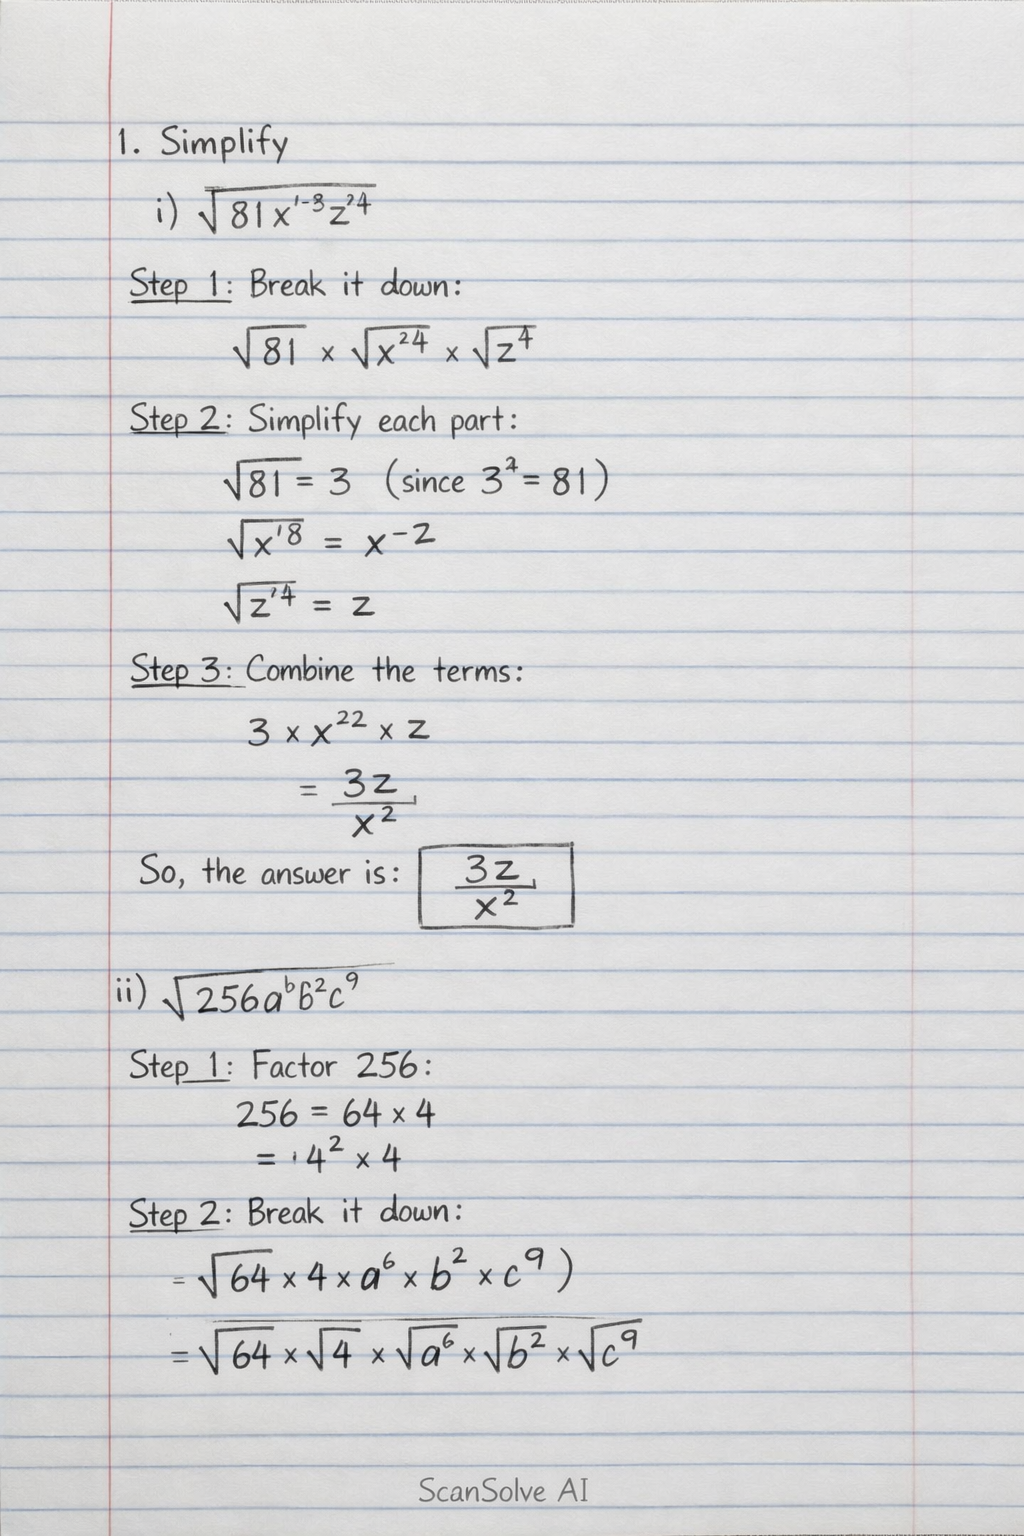 1. Simplify
i) √81x'⁻³z'⁴
Step 1: Break it down:
√81 × √x²⁴ × √z⁴
Step 2: Simplify each part:
√81 = 3 (since 3⁴ = 81)
√x'⁸ = x⁻²
√z'⁴ = z
Step 3: Combine the terms:
3 × x²² × z
= 3z/x²
So, the answer is: 3z/x²
ii) √256aᵇb²c⁹
Step 1: Factor 256:
256 = 64 × 4
= '4² × 4
Step 2: Break it down:
= √64 × 4 × a⁶ × b² × c⁹)
= √64 × √4 × √a⁶ × √b² × √c⁹
ScanSolve AI